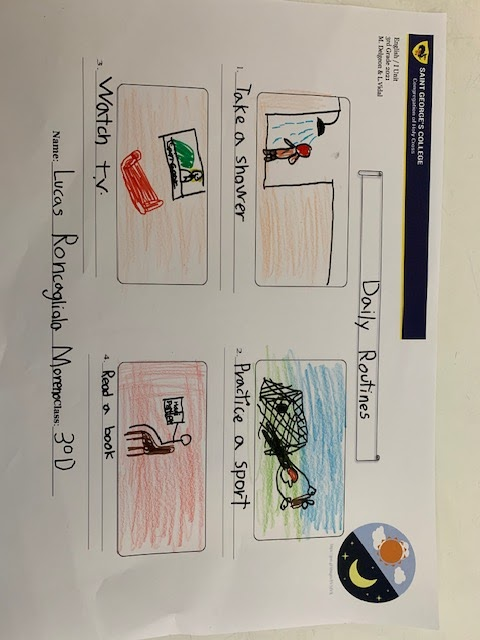 SAINT GEORGE'S COLLEGE
Congregation of Holy Cross
English / I Unit
3rd Grade 2021
M. Delgeon & L. Vidal
Daily Routines
1. Take a shower
2. Practice a sport
3. Watch t.v.
4. Read a book
Name: Lucas Roncagliolo Moreno Class: 3°D